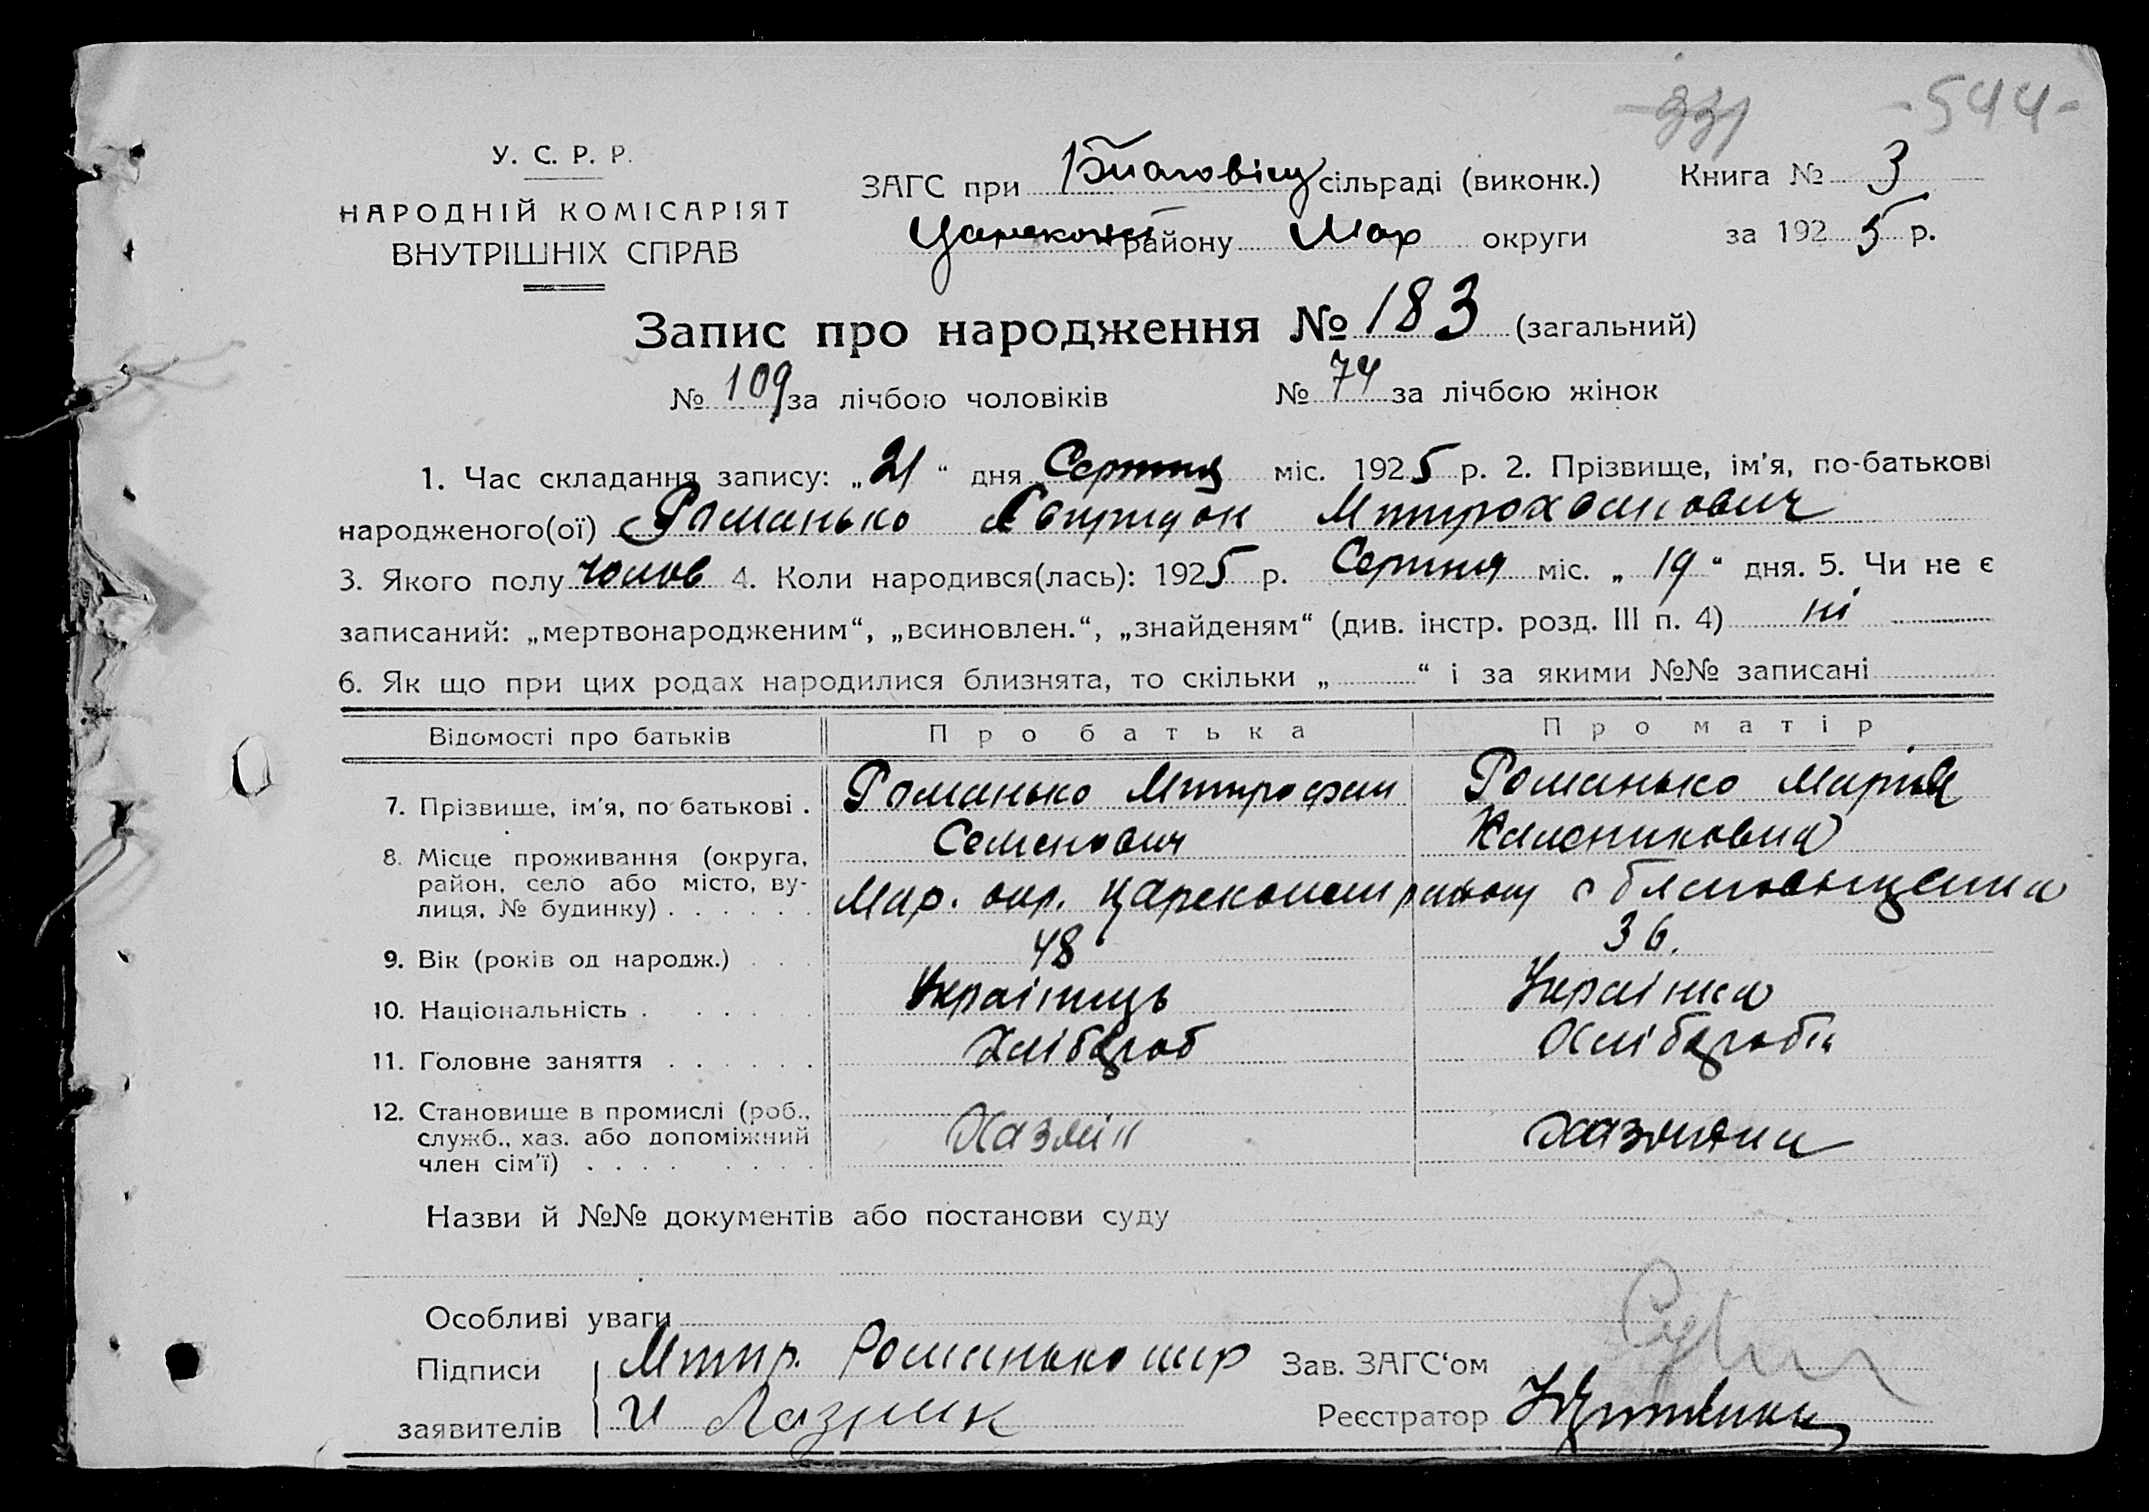 331 -544-
У. С. Р. Р.
НАРОДНІЙ КОМІСАРІЯТ
ВНУТРІШНІХ СПРАВ
ЗАГС при Благовіщ сільраді (виконк.) Книга № 3
району Мар округи за 1925 р.
Запис про народження № 183 (загальний)
№ 109 за лічбою чоловіків № 74 за лічбою жінок
1. Час складання запису: „21“ дня Серпня міс. 1925 р. 2. Прізвище, ім'я, по-батькові
народженого(ої) Романько Свиридон Митрохванович
3. Якого полу чолов 4. Коли народився(лась): 1925 р. Серпня міс. „19“ дня. 5. Чи не є
записаний: „мертвонародженим“, „всиновлен.“, „знайденям“ (див. інстр. розд. III п. 4) ні
6. Як що при цих родах народилися близнята, то скільки „ “ і за якими №№ записані
Відомості про батьків Про батька Про матір
7. Прізвище, ім'я, по батькові . Романько Митрофан Романько Марія
Семенович
8. Місце проживання (округа, район, село або місто, вулиця, № будинку) . . . . . . Мар. окр. району с
9. Вік (років од народж.) . . . 48 36.
10. Національність . . . . . . Українець Українка
11. Головне заняття . . . . . . Хлібороб Хліборобка
12. Становище в промислі (роб., служб., хаз. або допоміжний член сім'ї) . . . . . . . . Хазяїн хазяйка
Назви й №№ документів або постанови суду
Особливі уваги
Підписи Митр. Романько Зав. ЗАГС'ом
заявителів Реєстратор